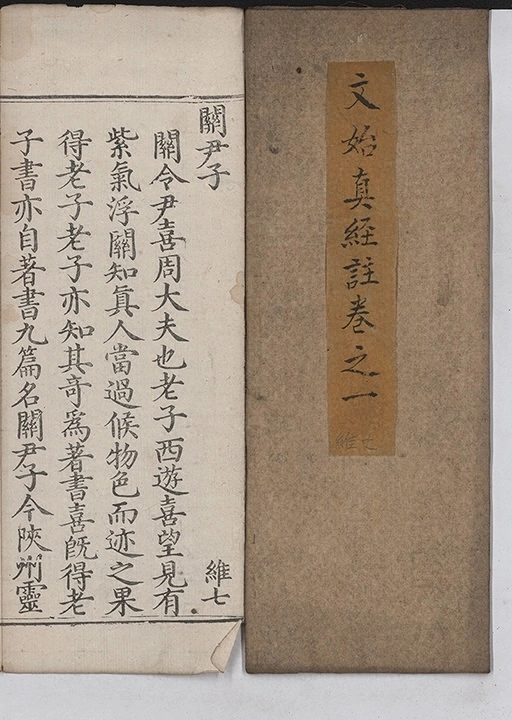 文始真經註卷之一
維七
關尹子
維七
關令尹喜周大夫也老子西遊喜望見有
紫氣浮關知眞人當過候物色而迹之果
得老子老子亦知其奇爲著書喜旣得老
子書亦自著書九篇名關尹子今陝州靈